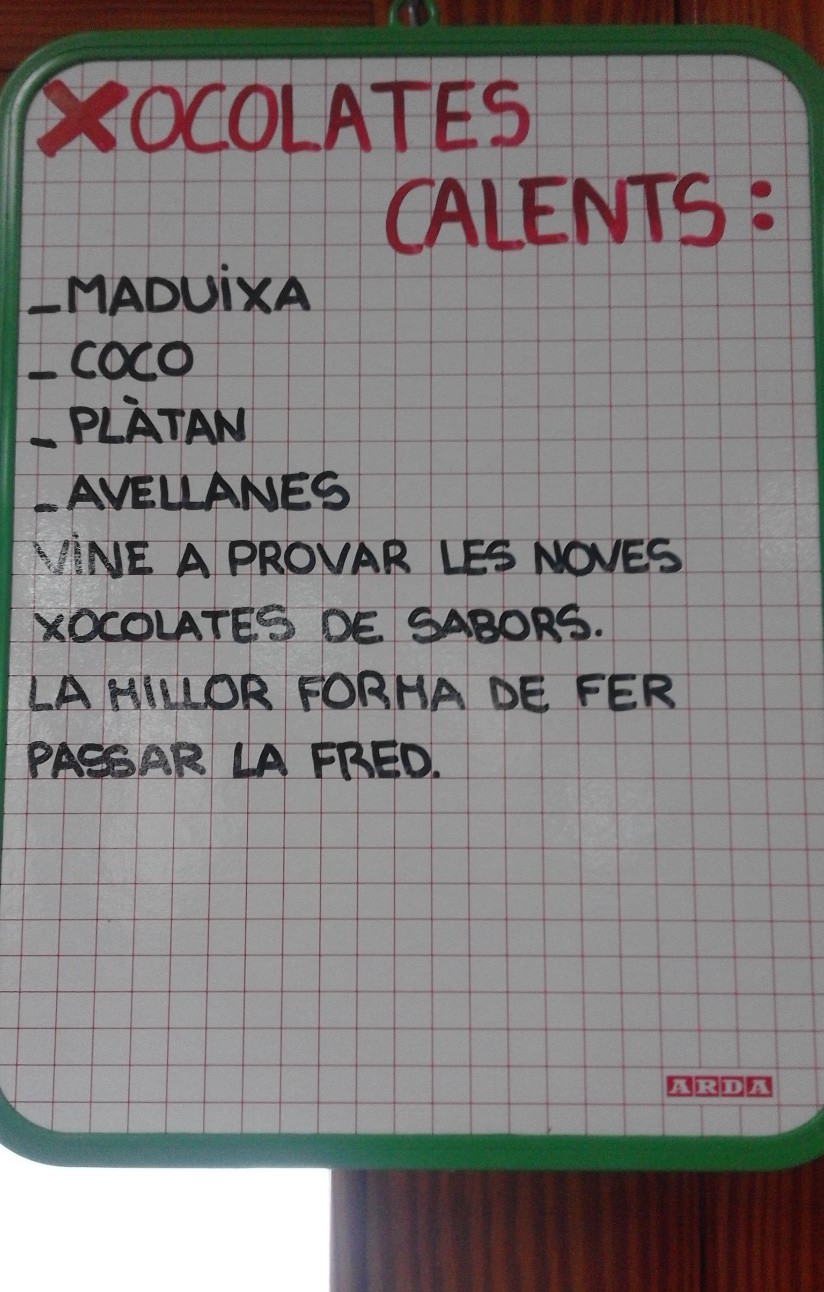 XOCOLATES
CALENTS:
- MADUiXA
- COCO
- PLÀTAN
- AVELLANES
ViNE A PROVAR LES NOVES
XOCOLATES DE SABORS.
LA MILLOR FORMA DE FER
PASSAR LA FRED.
ARDA